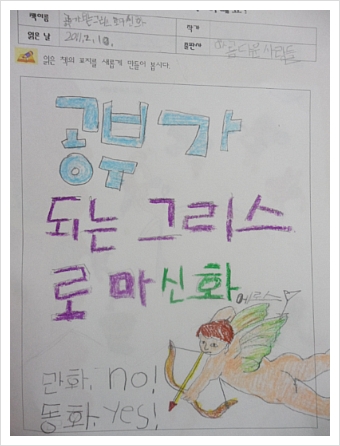 책이름 공부가 되는 그리스로마신화
읽은 날 2011.2.10. 작가
출판사 아름다운사람들
읽은 책의 표지를 새롭게 만들어 봅시다.
공부가
되는 그리스
로마신화
에로스
만화: no!
동화: yes!